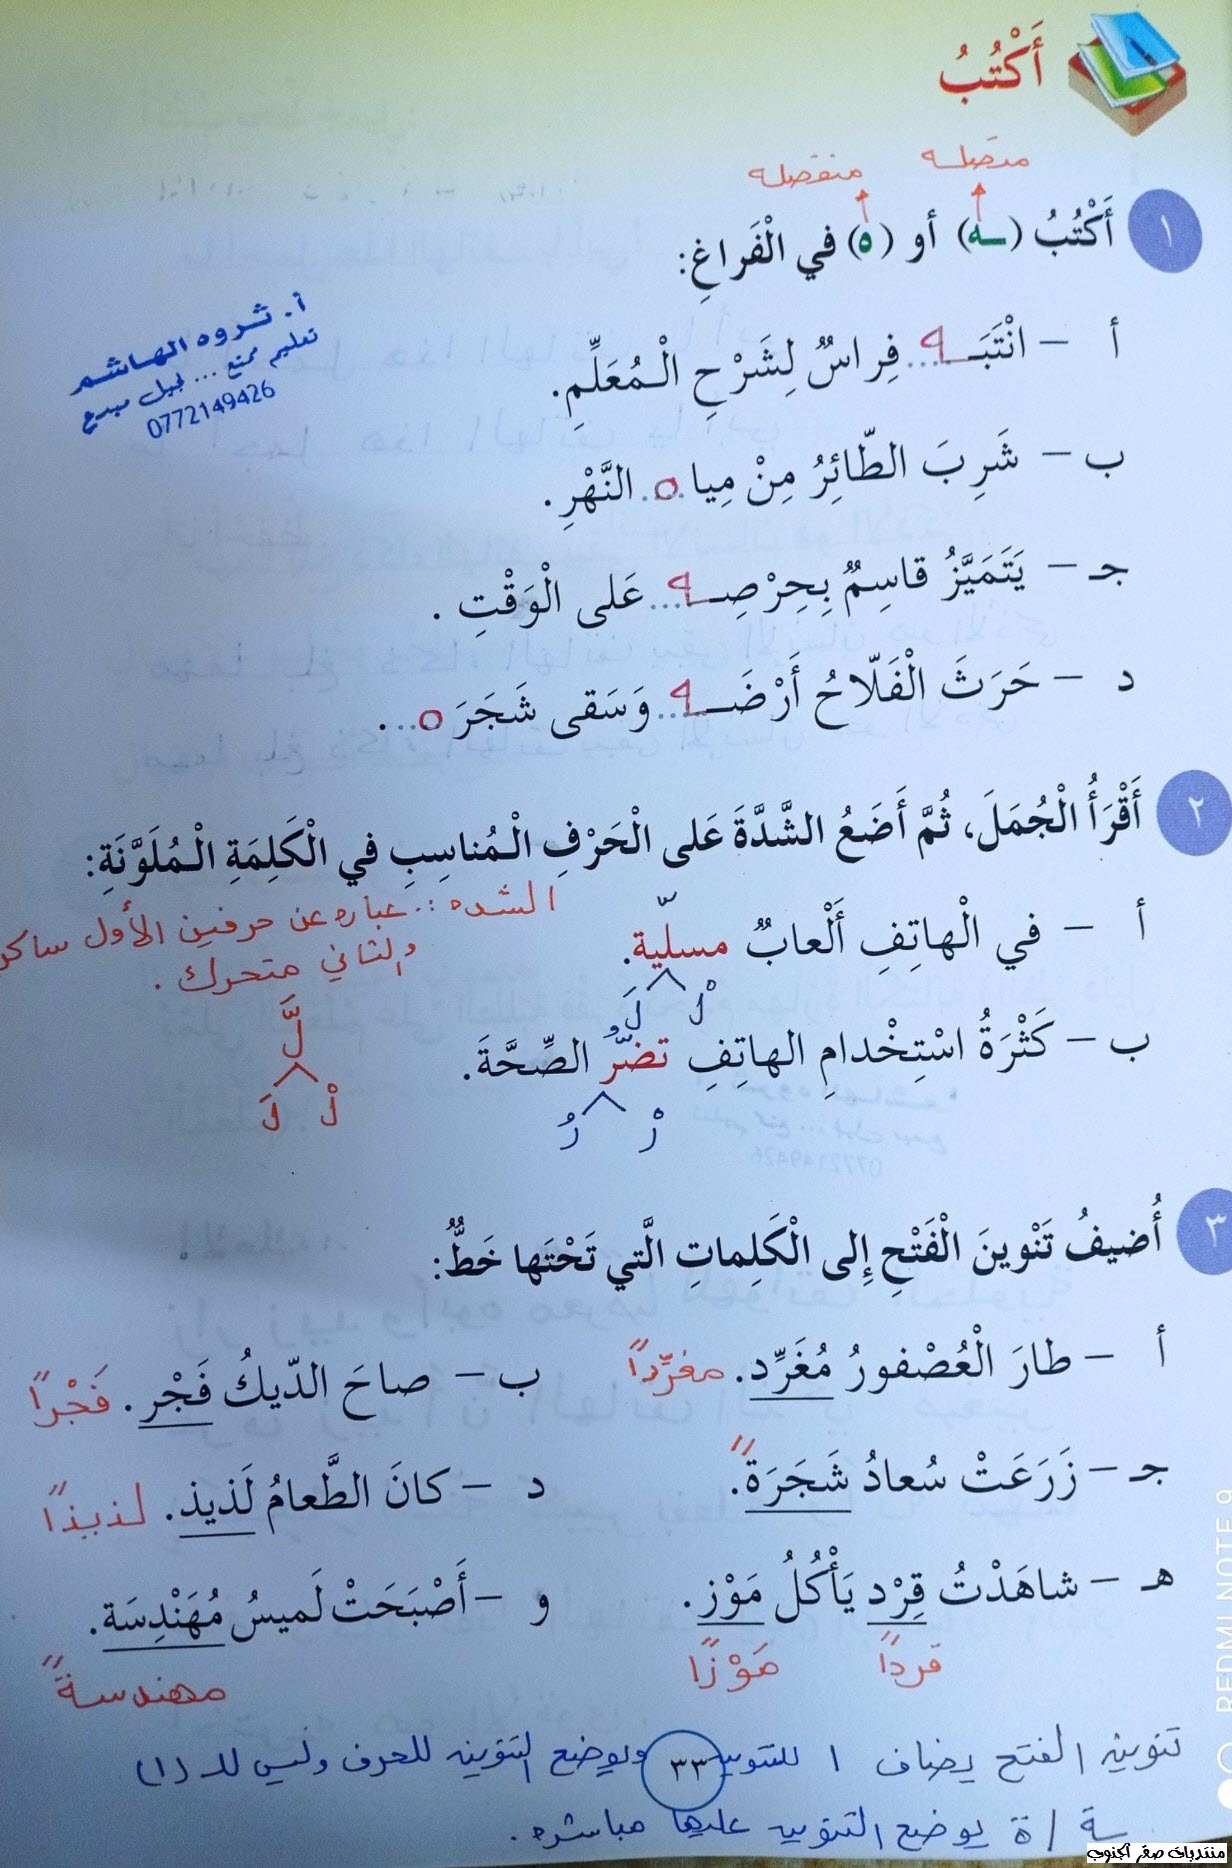 أَكْتُبُ
متصلـه
منفصله
١ أَكْتُبُ (ـه) أو (ه) في الْفَراغِ:
أ. ثروه الهاشم
تعليم ممتع ... لجيل مبدع
0772149426
أ - انْتَبَـه... فِراسٌ لِشَرْحِ الْمُعَلِّمِ.
ب - شَرِبَ الطّائِرُ مِنْ مِياه.. النَّهْرِ.
جـ - يَتَمَيَّزُ قاسِمٌ بِحِرْصِـه... عَلى الْوَقْتِ.
د - حَرَثَ الْفَلّاحُ أَرْضَـه... وَسَقى شَجَرَه... .
٢ أَقْرَأُ الْجُمَلَ، ثُمَّ أَضَعُ الشَّدَّةَ عَلى الْحَرْفِ الْمُناسِبِ في الْكَلِمَةِ الْمُلَوَّنَةِ:
الشده :. عباره عن حرفين الأول ساكن
والثاني متحرك .
أ - في الْهاتِفِ أَلْعابٌ مسلّية.
لْ لَ
لَّ
لْ لَ
ب - كَثْرَةُ اسْتِخْدامِ الهاتِفِ تضرُّ الصِّحَّةَ.
رْ رُ
٣ أُضيفُ تَنْوينَ الْفَتْحِ إِلى الْكَلِماتِ الَّتي تَحْتَها خَطٌّ:
أ - طارَ الْعُصْفورُ مُغَرِّد. مغرِّدًا
ب - صاحَ الدّيكُ فَجْر. فَجْرًا
جـ - زَرَعَتْ سُعادُ شَجَرَةً.
د - كانَ الطَّعامُ لَذيذ. لذيذًا
هـ - شاهَدْتُ قِرْد يَأْكُلُ مَوْز.
قردًا مَوْزًا
و - أَصْبَحَتْ لَميسُ مُهَنْدِسَة.
مهندسةً
تنوين الفتح يضاف ا للتنوين ويوضع التنوين للحرف وليس للـ (ا)
٣٣
ـة / ة يوضع التنوين عليها مباشره .
REDMI NOTE 9
منتديات صقر الجنوب